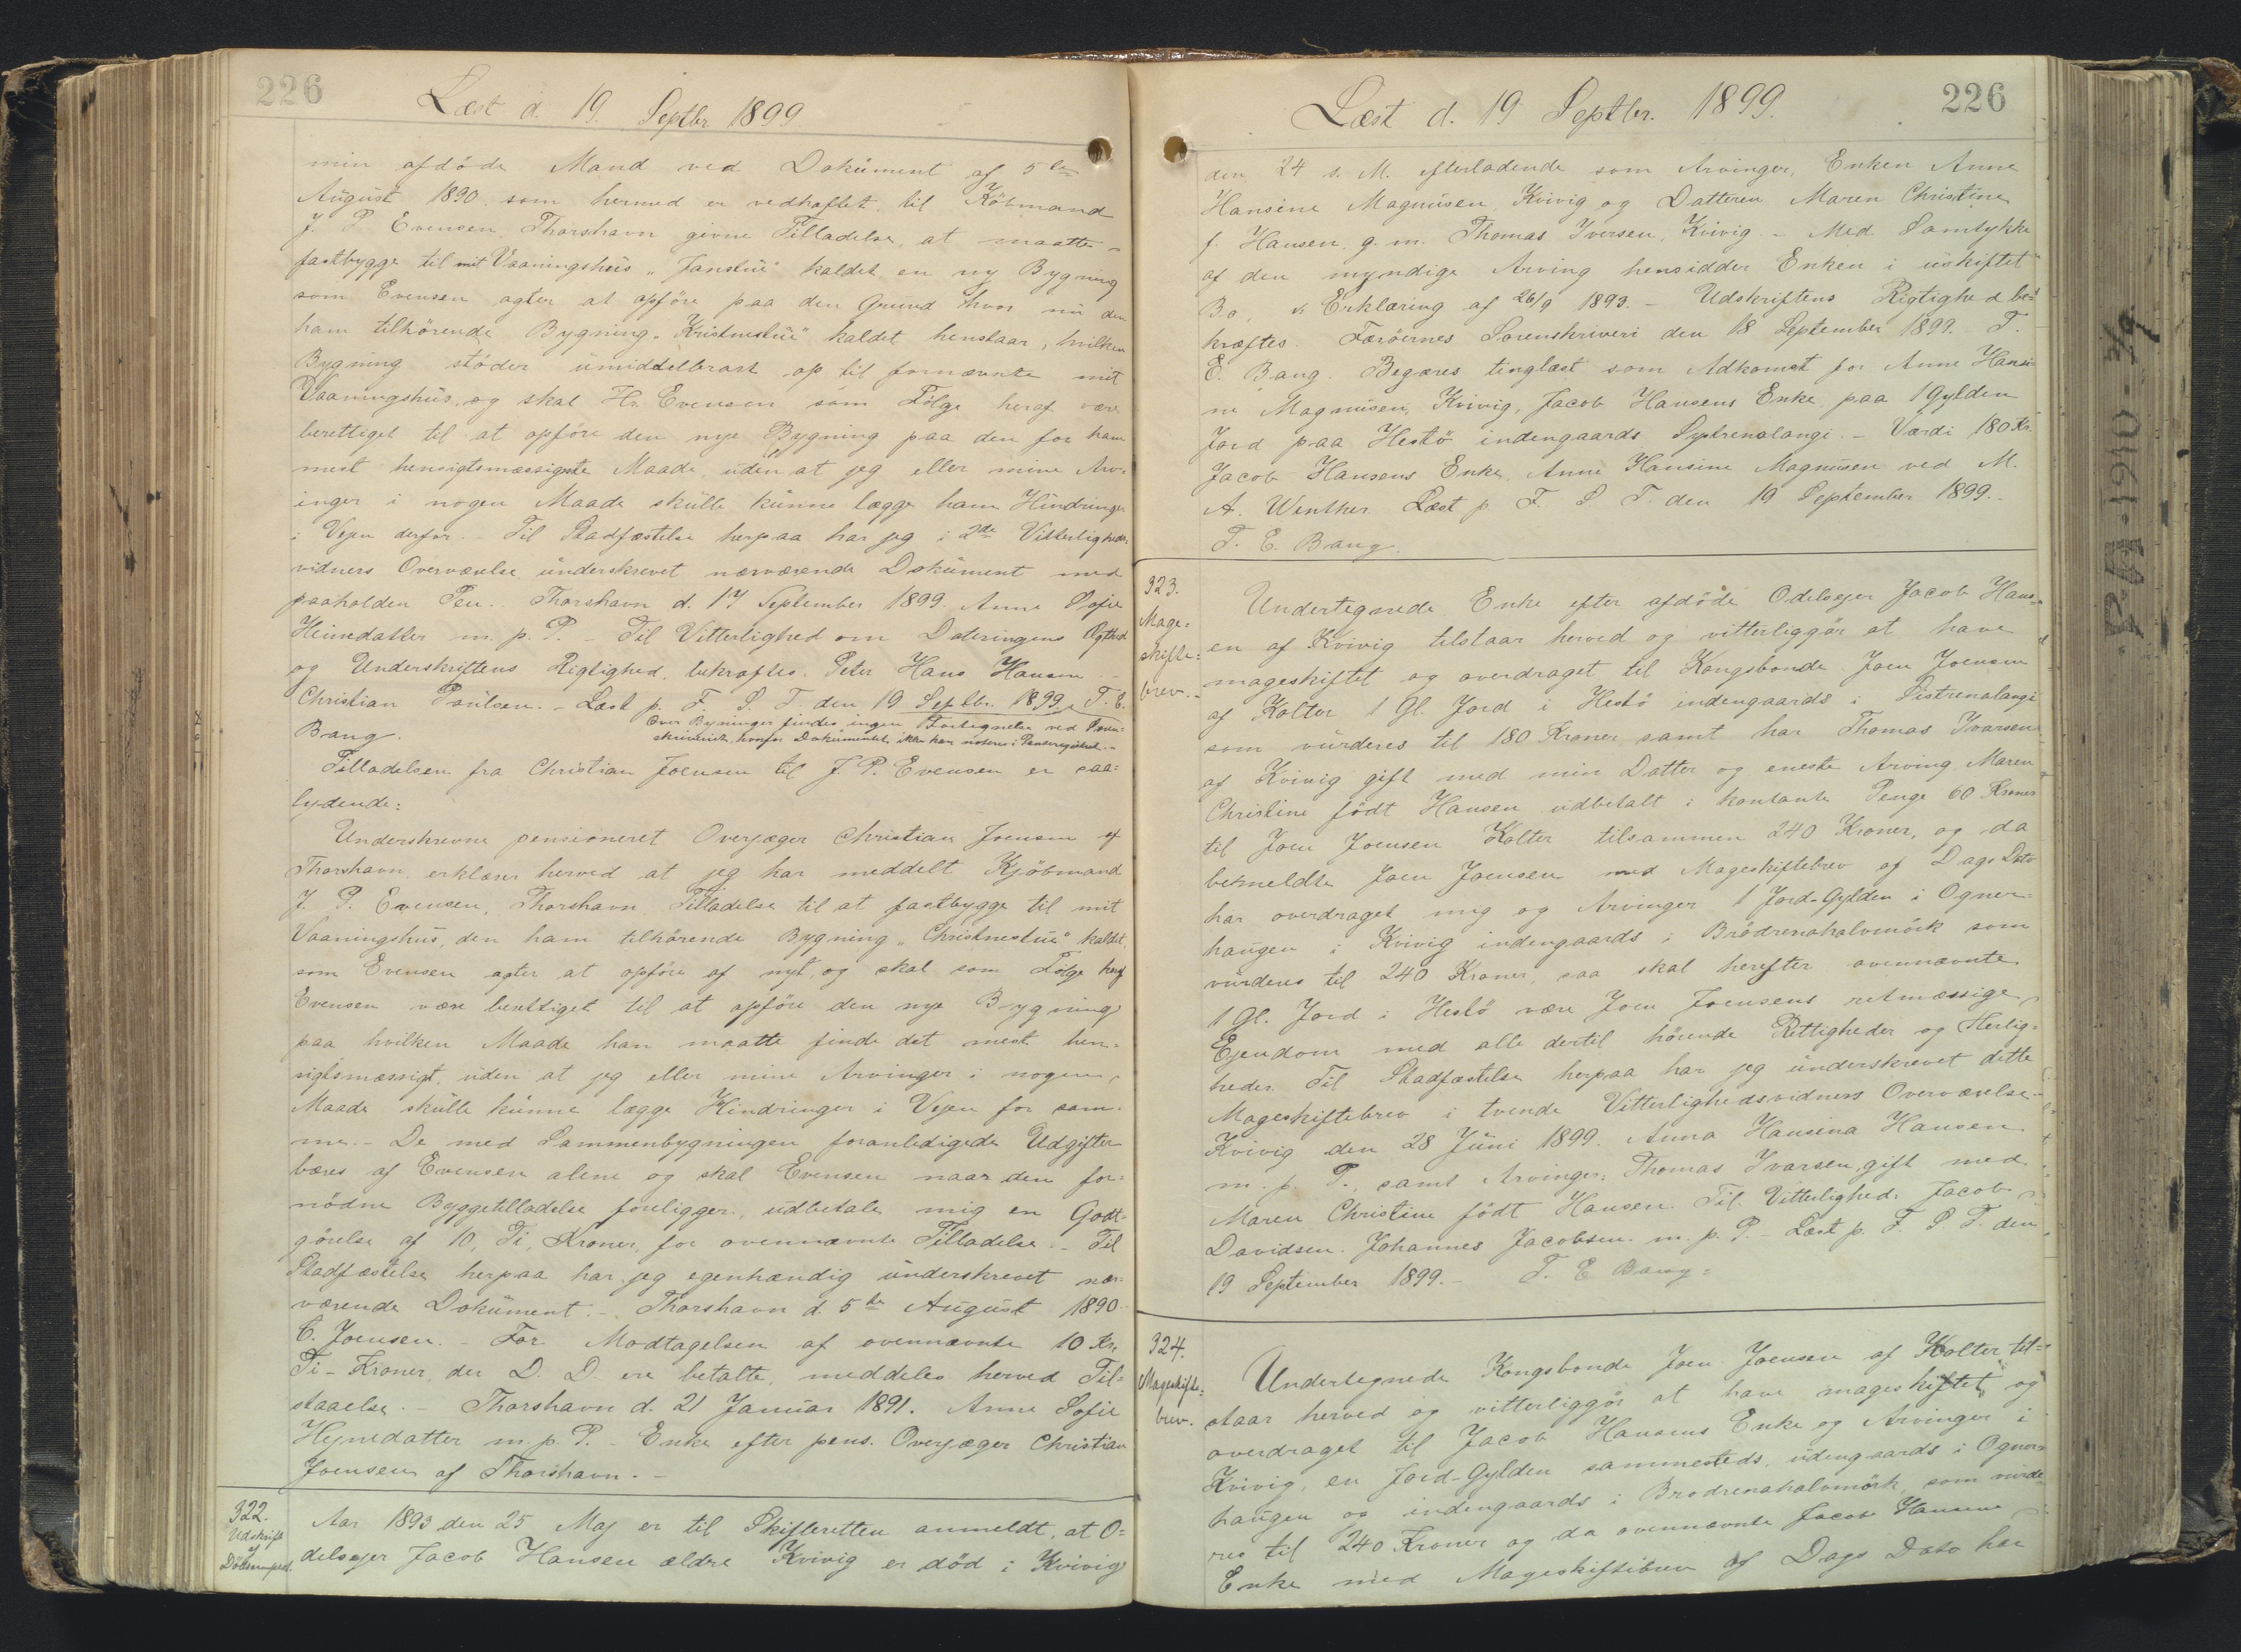 226
Læst d. 19. Septbr 1899
min afdöde Mand ved Dokument af 5te
August 1890 som hermed er vedhæftet til Köbmand
J. P. Evensen, Thorshavn givne Tilladelse, at maatte
fastbygge til mit Vaaningshus "Janstue" kaldet en ny Bygning
som Evensen agter at opföre paa den Grund hvor nu den
ham tilhörende Bygning "Kristnestue" kaldet henstaar, hvilken
Bygning stöder umiddelbrart op til fornævnte mit
Vaaningshus, og skal Hr. Evensen som Fölge heraf være
berettiget til at opföre den nye Bygning paa den for ham
mest hensigtsmæssigste Maade, uden at jeg eller mine Arv-
inger i nogen Maade skulle kunne lægge ham Hindringer
i Vejen derfor. - Til Stadfæstelse herpaa har jeg i 2de Vitterligheds-
vidners Overværelse underskrevet nærværende Dokument med
paaholden Pen. Thorshavn d. 17 September 1899. Anne Sofie
Heinedatter m. p. P. - Til Vitterlighed om Dateringens Ægthed
og Underskriftens Rigtighed, bekræftes. Peter Hans Hansen -
Christian Poulsen. - Læst p. F. S. T. den 19 Septbr. 1899. T. E.
Bang.
Over Bygninger findes ingen Fortegnelse ved Soren-
skriveriet, hvorfor Dokumentet ikke kan noteres i Panteregistret. -
Tilladelsen fra Christian Joensen til J. P. Evensen er saa-
lydende:
Underskrevne pensioneret Overjæger Christian Joensen af
Thorshavn, erklærer herved at jeg har meddelt Kjöbmand
J. P. Evensen, Thorshavn Tilladelse til at fastbygge til mit
Vaaningshus, den ham tilhörende Bygning "Christnestue" kaldet,
som Evensen agter at opföre af nyt, og skal som Fölge heraf
Evensen være berettiget til at opföre den nye Bygning
paa hvilken Maade han maatte finde det mest hen-
sigtsmæssigt, uden at jeg eller mine Arvinger i nogen
Maade skulle kunne lægge Hindringer i Vejen for sam-
me. - De med Sammenbygningen foranledigede Udgifter
bæres af Evensen alene og skal Evensen naar den for-
nödne Byggetilladelse foreligger, udbetale mig en Godt-
görelse af 10, Ti, Kroner, for ovennævnte Tilladelse. - Til
Stadfæstelse herpaa har jeg egenhændig underskrevet nær-
værende Dokument. - Thorshavn d. 5te August 1890
C. Joensen. - For Modtagelsen af ovennævnte 10 Kr.
Ti-Kroner, der D. D. ere betalte, meddeles herved Til-
staaelse. - Thorshavn d. 21 Januar 1891. Anne Sofie
Hejnedatter m. p. P. - Enke efter pens. Overjæger Christian
Joensen af Thorshavn. -
322.
Udskrift
af
Dödsanmeld.
Aar 1893 den 25 Maj er til Skifteretten anmeldt, at O-
delsejer Jacob Hansen ældre Kvivig er död i Kvivig
226
Læst d. 19 Septbr. 1899.
den 24 s. M. efterladende som Arvinger, Enken Anne
Hansine Magnusen, Kvivig og Datteren Maren Christine
f. Hansen, g. m. Thomas Iversen, Kvivig. - Med Samtykke
af den myndige Arving hensidder Enken i uskiftet
Bo, Erklæring af 26/9 1893. - Udskriftens Rigtighed be-
kræftes. Færöernes Sorenskriveri den 18 September 1899. T.
E. Bang. Begæres tinglæst som Adkomst for Anne Hansi-
ne Magnusen, Kvivig, Jacob Hansens Enke paa 1 Gylden
Jord paa Hestö indengaards Systrenalangi. - Værdi 180 Kr.
Jacob Hansens Enke, Anne Hansine Magnusen ved M.
A. Winther. Læst p. F. S. T. den 19 September 1899. -
T. E. Bang.
323.
Mage-
skifte-
brev. -
Undertegnede Enke efter afdöde Odelsejer Jacob Hans-
en af Kvivig tilstaar herved og vitterliggör at have
mageskiftet og overdraget til Kongsbonde Joen Joensen
af Kolter 1 Gl. Jord i Hestö indengaards i Sistrenalangi
som vurderes til 180 Kroner samt har Thomas Ivarsen
af Kvivig gift med min Datter og eneste Arving Maren
Christine födt Hansen udbetalt i kontante Penge 60 Kroner
til Joen Joensen Kolter tilsammen 240 Kroner, og da
bemeldte Joen Joensen med Mageskiftebrev af Dags Dato
har overdraget mig og Arvinger 1 Jord-Gylden i Ogner-
haugen i Kvivig indengaards i Brödrenahalvmörk som
vurderes til 240 Kroner, saa skal herefter ovennævnte
1 Gl. Jord i Hestö være Joen Joensens retmæssige
Ejendom med alle dertil hörende Rettigheder og Herlig-
heder. Til Stadfæstelse herpaa har jeg underskrevet dette
Mageskiftebrev i tvende Vitterlighedsvidners Overværelse. -
Kvivig den 28 Juni 1899. Anna Hansina Hansen
m. p. P., samt Arvinger: Thomas Ivarsen, gift med
Maren Christine födt Hansen. Til Vitterlighed: Jacob
Davidsen. Johannes Jacobsen. m. p. P. - Læst p. F. S. T. den
19 September 1899. - T. E. Bang.
324.
Mageskifte-
brev.
Undertegnede Kongsbonde Joen Joensen af Kolter til-
staar herved og vitterliggör at have mageskiftet og
overdraget til Jacob Hansens Enke og Arvinger i
Kvivig, en Jord-Gylden sammesteds, udengaards i Ogner-
haugen og indengaards i Brodrenahalvmörk, som vurde-
res til 240 Kroner og da ovennævnte Jacob Hansens
Enke med Mageskiftebrev af Dags Dato har